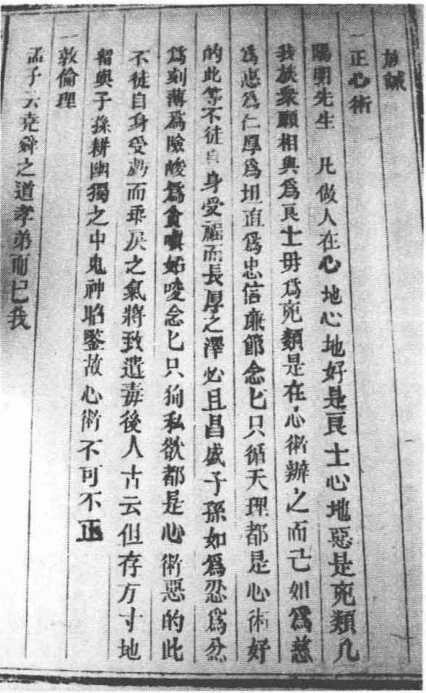 族誡
一正心術
陽明先生 凡做人在心地心地好是良士心地惡是兇類凡
我族衆願相與爲良士毋爲兇類是在心術辦之而已如爲慈
爲爲仁厚爲坦直爲忠信廉節念匕只循天理都是心術好
的此等不徒自身受而長厚之澤必且昌盛子孫如爲忍爲忿
爲刻薄爲險酸爲貪嗔妬唆念匕只狥私欲都是心術惡的此
不徒自身受虧而乖戾之氣將致遺毒後人古云但存方寸地
留與子孫耕幽獨之中鬼神昭鑒故心術不可不正
一敦倫理
孟子云堯舜之道孝弟而已我